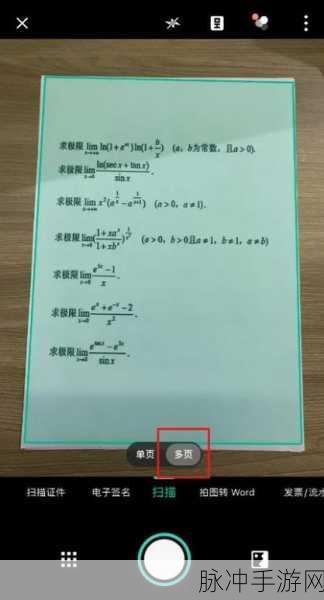 求极限 lim x→+∞ ln(1+e^{ax})ln(1+b/x) (a, b为常数, 且a>0).
求极限 lim x→0 ln(sec x+tan x)/sin x.
求极限 lim x→+∞ x²(a^{1/x}-a^{1/(x+1)}) (a>0, a≠1).
求极限 lim x→0 ((1+xa^x)/(1+xb^x))^{1/x²} (a>0, b>0且a≠1, b≠1, a≠b)
求极限 lim x→0 (e^{5x}-1)/x.
求极限 lim x→0 (e^x+e^{-x}-2)/x².
求极限 lim x→0
单页 多页
扫描证件 电子签名 扫描 拍图转 Word 发票/流水
脉冲手游网